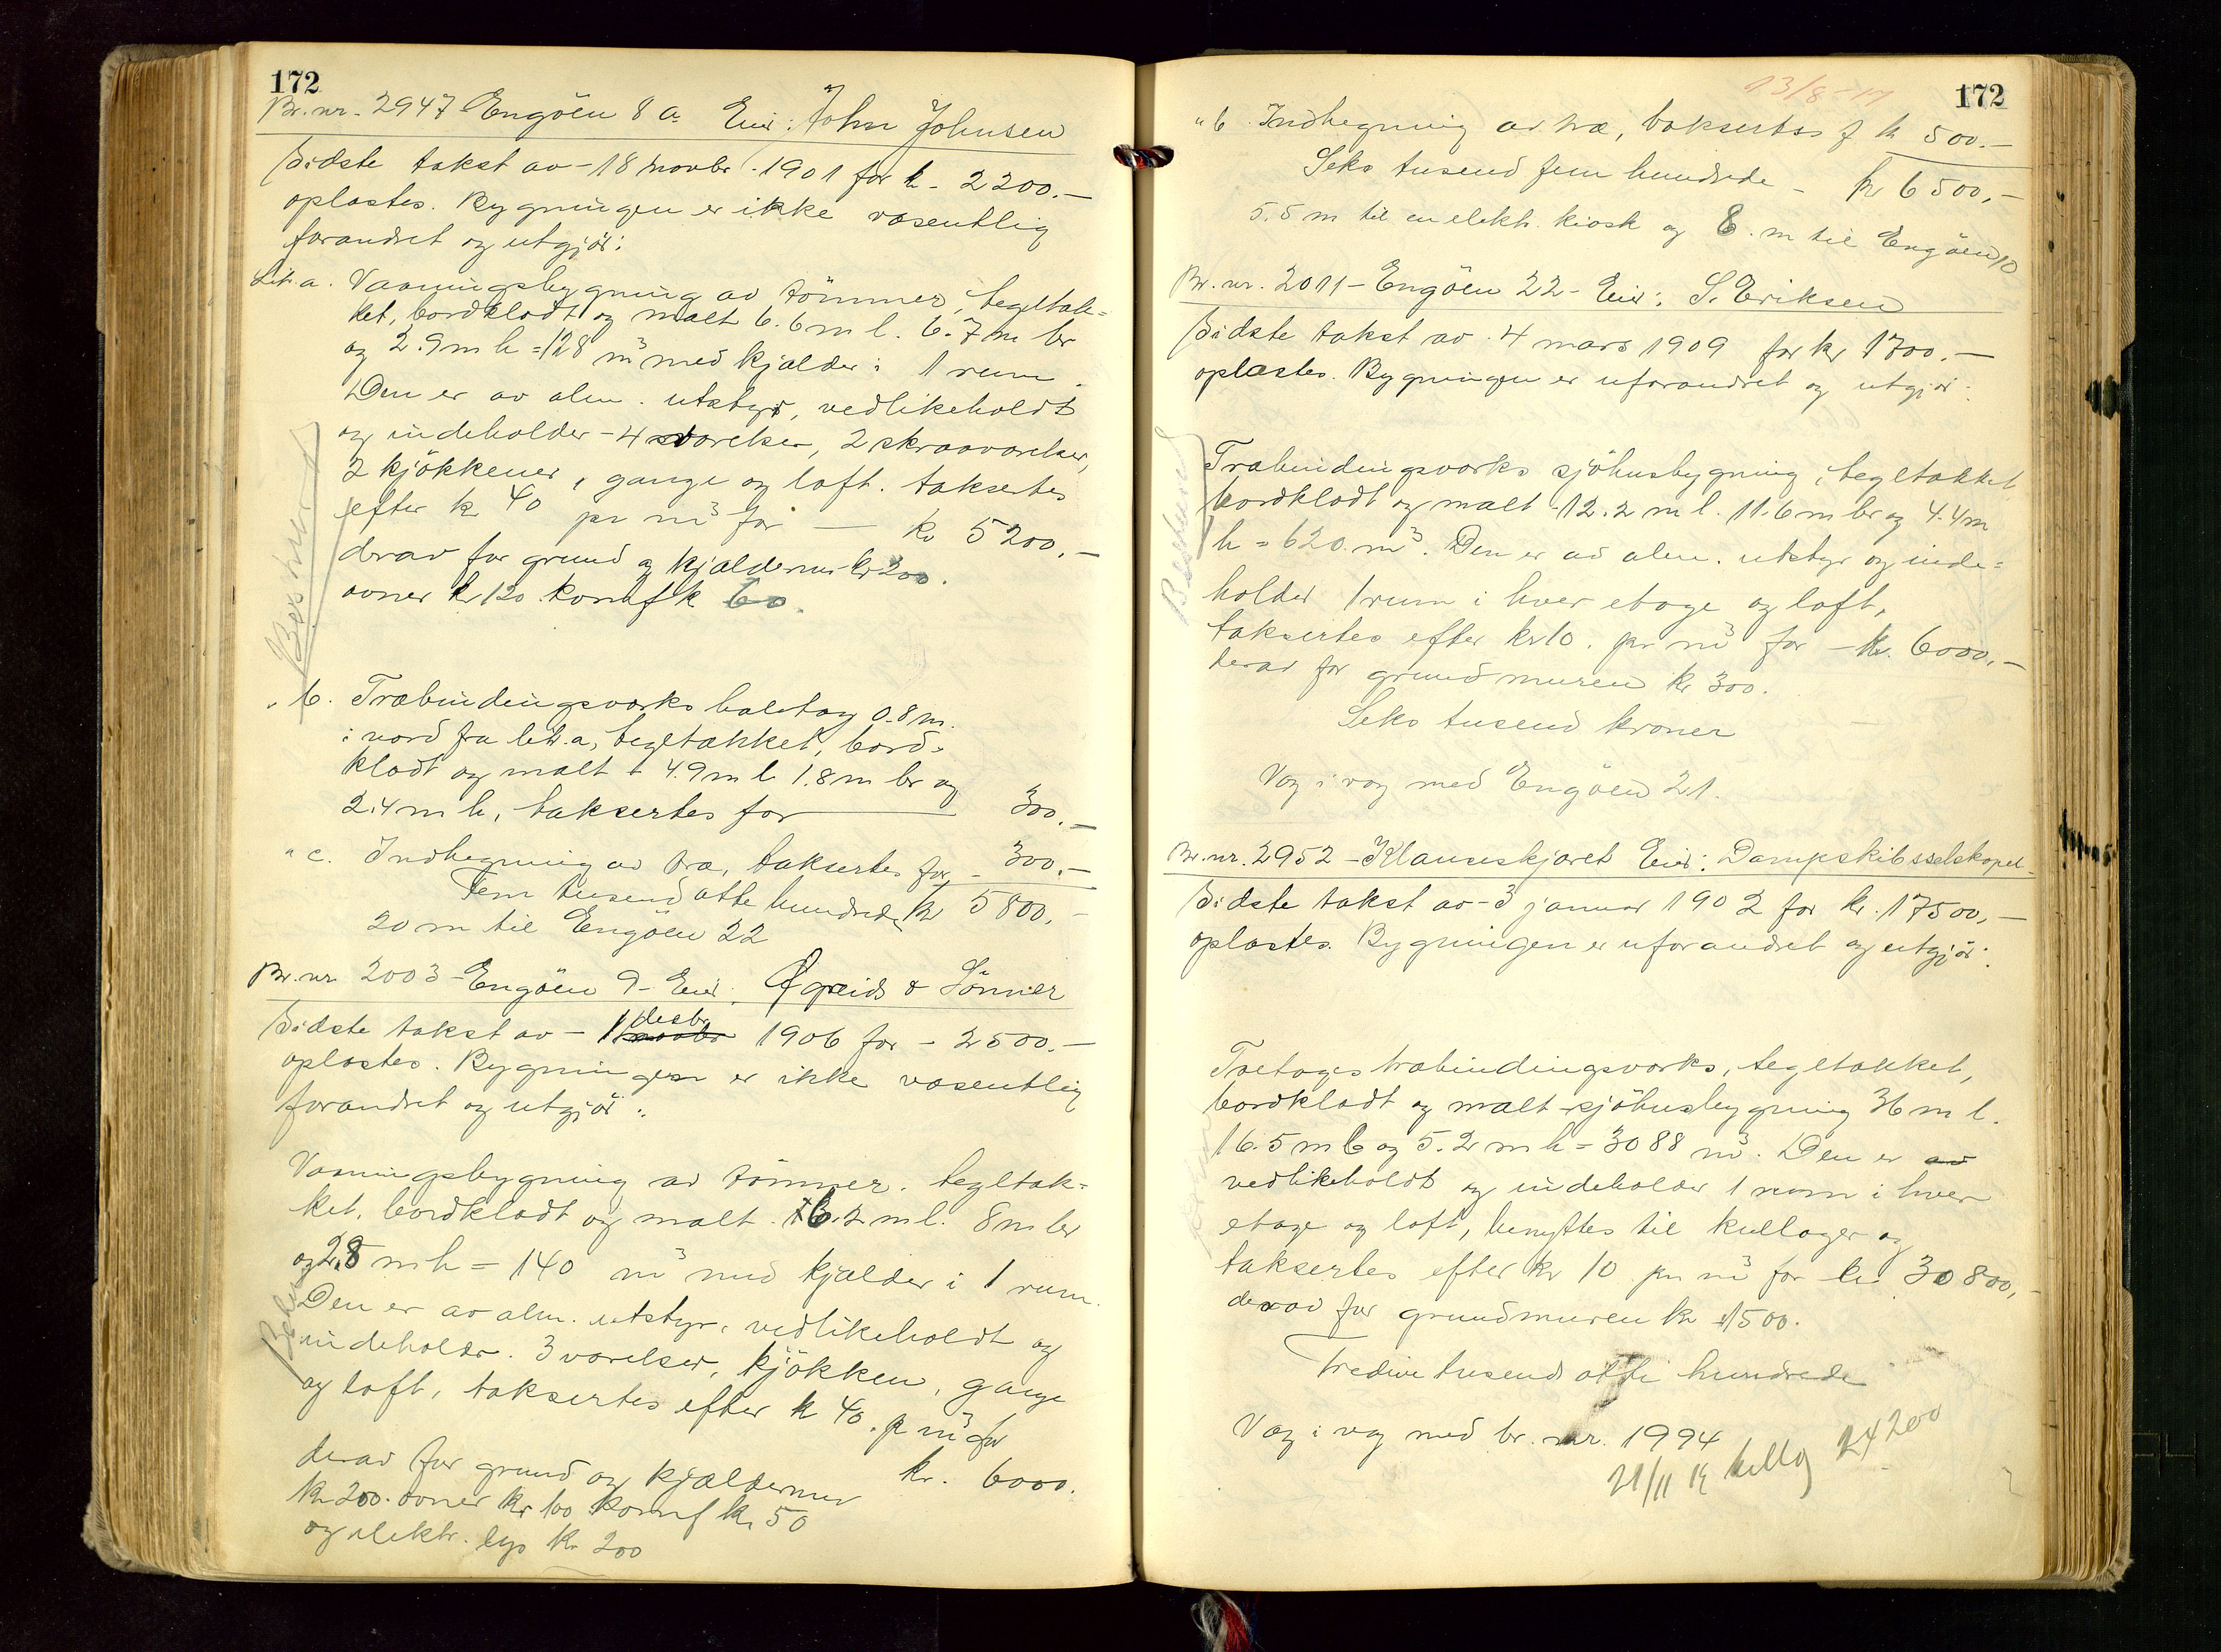 172
Br. nr. 2947 Engöen 8 a Eier: John Johnsen
Sidste takst av - 18 novbr. 1901 for k. 2200.-
oplæstes. Bygningen er ikke væsentlig
forandret og utgjör:
Lit. a. Vaaningsbygning av tömmer, tegltæk=
ket, bordklædt og malt 6.6 m l. 6.7 m br
og 2.9 m h = 128 m³ med kjælder i 1 rum.
Den er av alm. utstyr, vedlikeholdt
og indeholder - 4 værelser, 2 skraaværelser,
2 kjökkener, gange og loft. taksertes
efter kr 40 pr m³ for — kr 5200.-
derav for grund og kjældermur kr 200.
ovner kr 120 komf k 60.
" b. Træbindingsværks halvtag 0.8 m.
i nord fra lit. a, tegltækket, bord-
klædt og malt 4.9 m l 1.8 m br og
2.4 m h, taksertes for — 300.-
" c. Indhegning av træ, taksertes for - 300.-
Fem tusend otte hundrede kr 5800.-
20 m til Engöen 22
Br. nr 2003 - Engöen 9 - Eier. Øgreids & Sönner
Sidste takst av - 11 novbr desbr 1906 for - 2500.-
oplæstes. Bygningen er ikke væsentlig
forandret og utgjör:
Vaaningsbygning av tömmer, tegltæk=
ket, bordklædt og malt. 6.2 m l. 8 m br
og 2.8 m h = 140 m³ med kjælder i 1 rum.
Den er av alm. utstyr, vedlikeholdt og
indeholder. 3 værelser, kjökken, gange
og loft, taksertes efter k 40. pr m³ for
kr. 6000.
derav for grund og kjældermur
kr 200. ovner kr 100 komf kr 50
og elektr. lys kr 200
13/8-17
172
" b. Indhegning av træ, taksertes f k 500.-
Seks tusend fem hundrede - kr 6500,-
5.5 m til en elektr. kiosk og 8. m til Engöen 10
Br. nr. 2011 - Engöen 22 - Eier: S. Eriksen
Sidste takst av. 4 mars 1909 for kr 1700.-
oplæstes. Bygningen er uforandret og utgjör:
Træbindingsværks sjöhusbygning, tegltækket
bordklædt og malt 12.2 m l. 11.6 m br og 4.4 m
h = 620. m³. Den er av alm. utstyr og inde=
holder 1 rum i hver etage og loft,
taksertes efter kr 10. pr m³ for - kr. 6000.-
derav for grundmuren kr 300.
Seks tusend kroner
Væg i væg med Engöen 21.
Br. nr. 2952 - Klauseskjæret Eier: Dampskibsselskapet
Sidste takst av - 3 januar 1902 for kr. 17500,-
oplæstes. Bygningen er uforandret og utgjör:
Toetages træbindingsværks, tegltækket,
bordklædt og malt sjöhusbygning 36 m l.
16.5 m b og 5.2 m h = 3088 m³. Den er av
vedlikeholdt og indeholder 1 rum i hver
etage og loft, benyttes til kullager og
taksertes efter kr 10 pr m³ for kr. 30800,-
derav for grundmuren kr 1500.
Tredive tusend otte hundrede
Væg i væg med br. nr. 1994